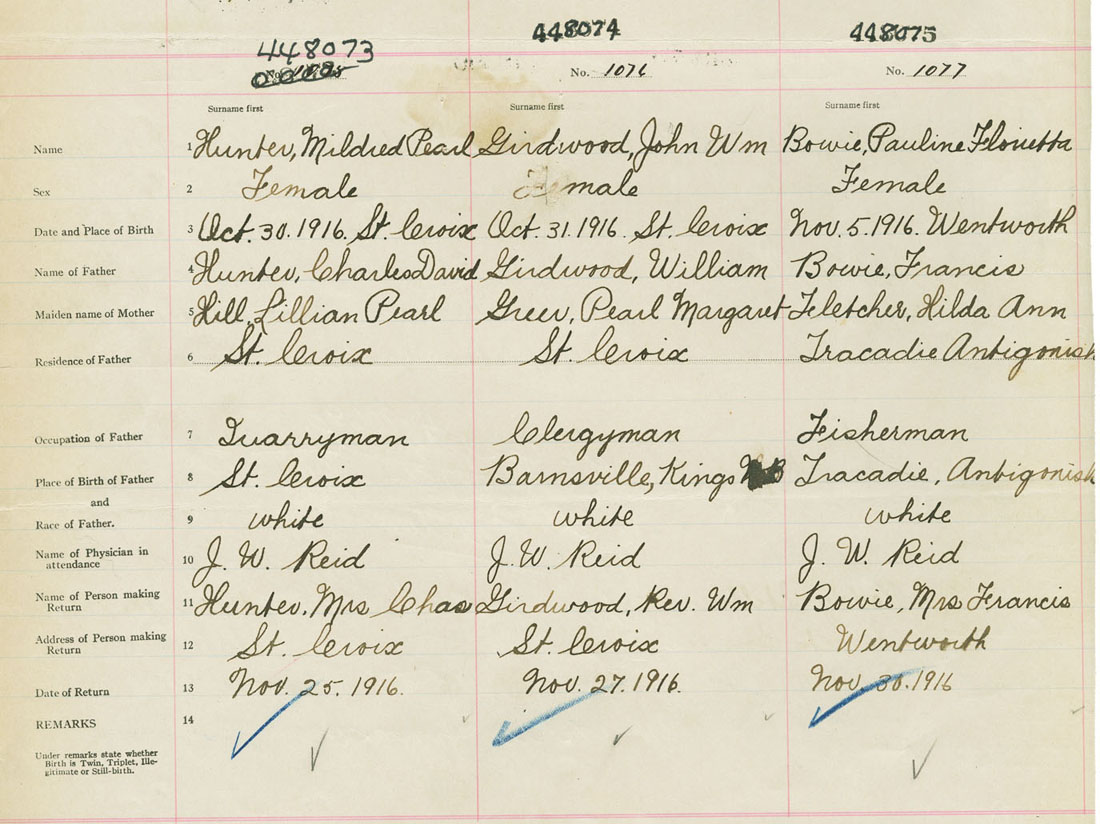 448073 448074 448075
No. 1076 No. 1077
Surname first Surname first Surname first
Name 1 Hunter, Mildred Pearl Girdwood, John Wm Bowie, Pauline
Sex 2 Female male Female
Date and Place of Birth 3 Oct. 30. 1916. St. Croix Oct. 31. 1916. St. Croix Nov. 5. 1916. Wentworth
Name of Father 4 Hunter, Charles David Girdwood, William Bowie, Francis
Maiden name of Mother 5 Hill, Lillian Pearl Greer, Pearl Margaret Fletcher, Hilda Ann
Residence of Father 6 St. Croix St. Croix Tracadie Antigonish
Occupation of Father 7 Quarryman Clergyman Fisherman
Place of Birth of Father 8 St. Croix Barnsville, Kings B Tracadie, Antigonish
and
Race of Father. 9 white white white
Name of Physician in
attendance 10 J. W. Reid J. W. Reid J. W. Reid
Name of Person making
Return 11 Hunter, Mrs Chas Girdwood, Rev. Wm Bowie, Mrs Francis
Address of Person making
Return 12 St. Croix St. Croix Wentworth
Date of Return 13 Nov. 25. 1916. Nov. 27. 1916. Nov 30. 1916
REMARKS 14
Under remarks state whether
Birth is Twin, Triplet, Ille-
gitimate or Still-birth.